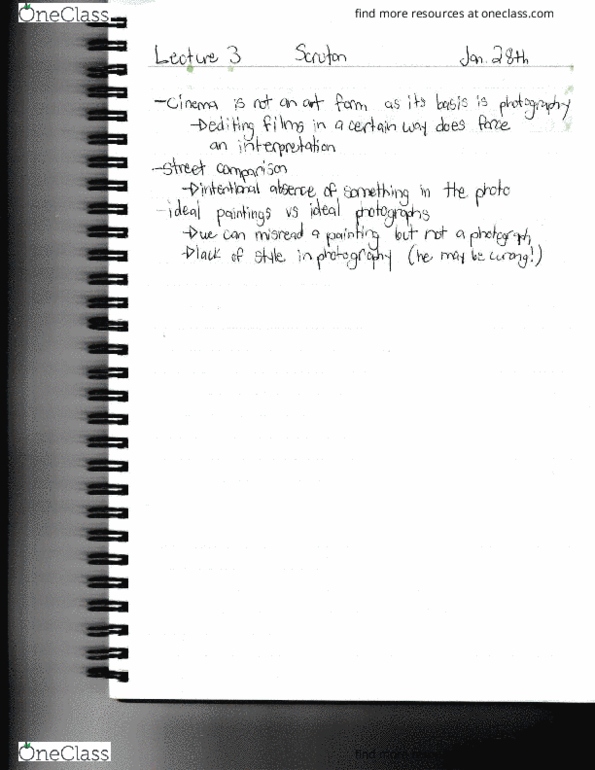 OneClass
find more resources at oneclass.com
Lecture 3 Scruton Jan. 28th
-Cinema is not an art form as its basis is photography
→editing films in a certain way does force
an interpretation
-street comparison
→intentional absence of something in the photo
-ideal paintings vs ideal photographs
→we can misread a painting but not a photograph
→lack of style in photography (he may be wrong!)
OneClass
find more resources at oneclass.com